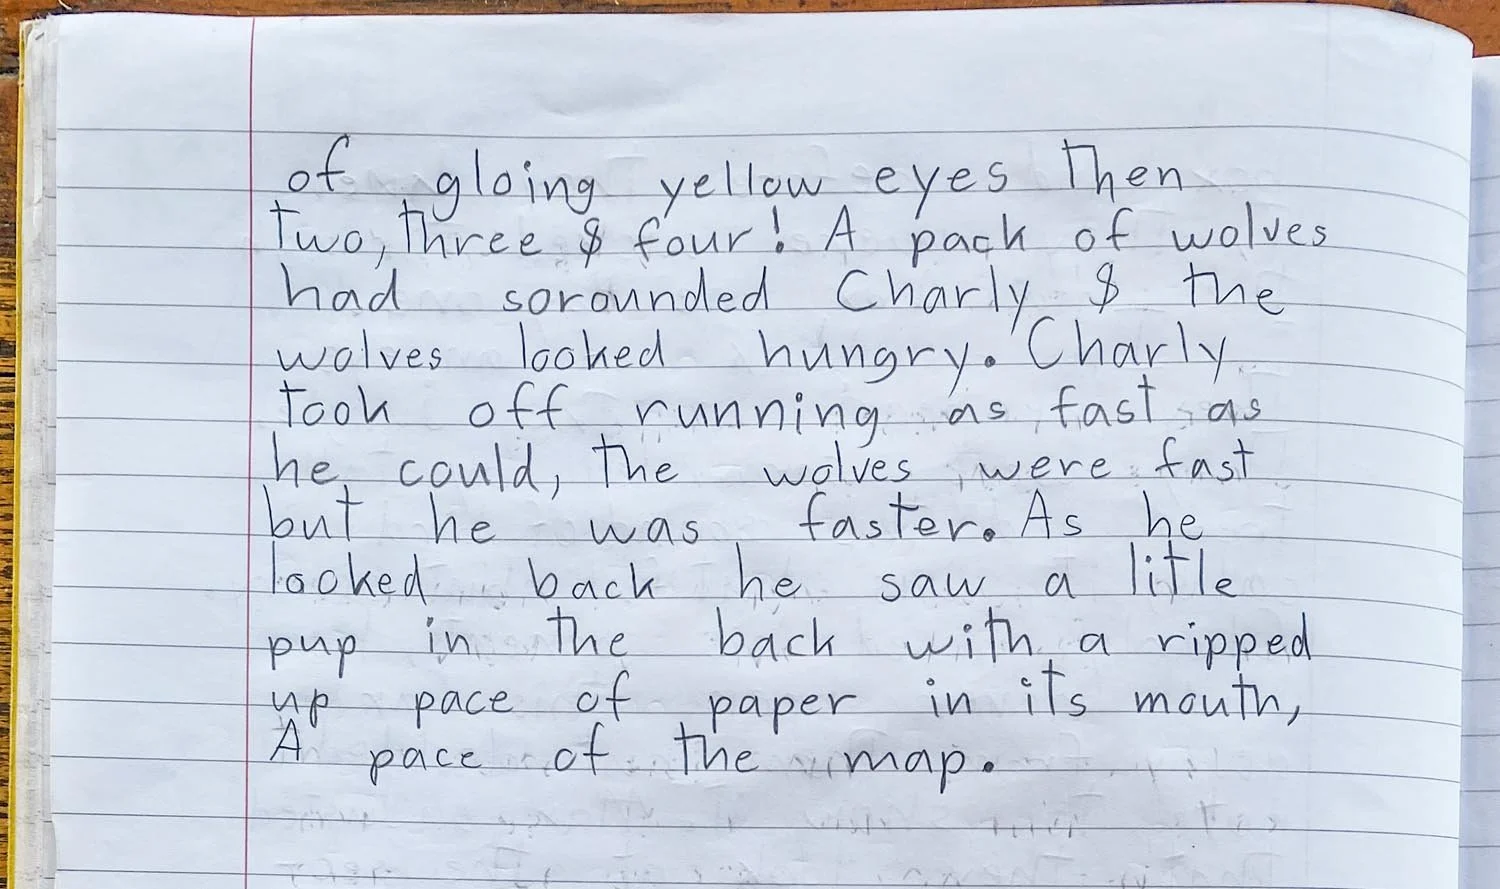 of gloing yellow eyes Then
Two, three & four! A pack of wolves
had sorounded Charly & the
wolves looked hungry. Charly
took off running as fast as
he could, the wolves were fast
but he was faster. As he
looked back he saw a litle
pup in the back with a ripped
up pace of paper in its mouth,
A pace of the map.